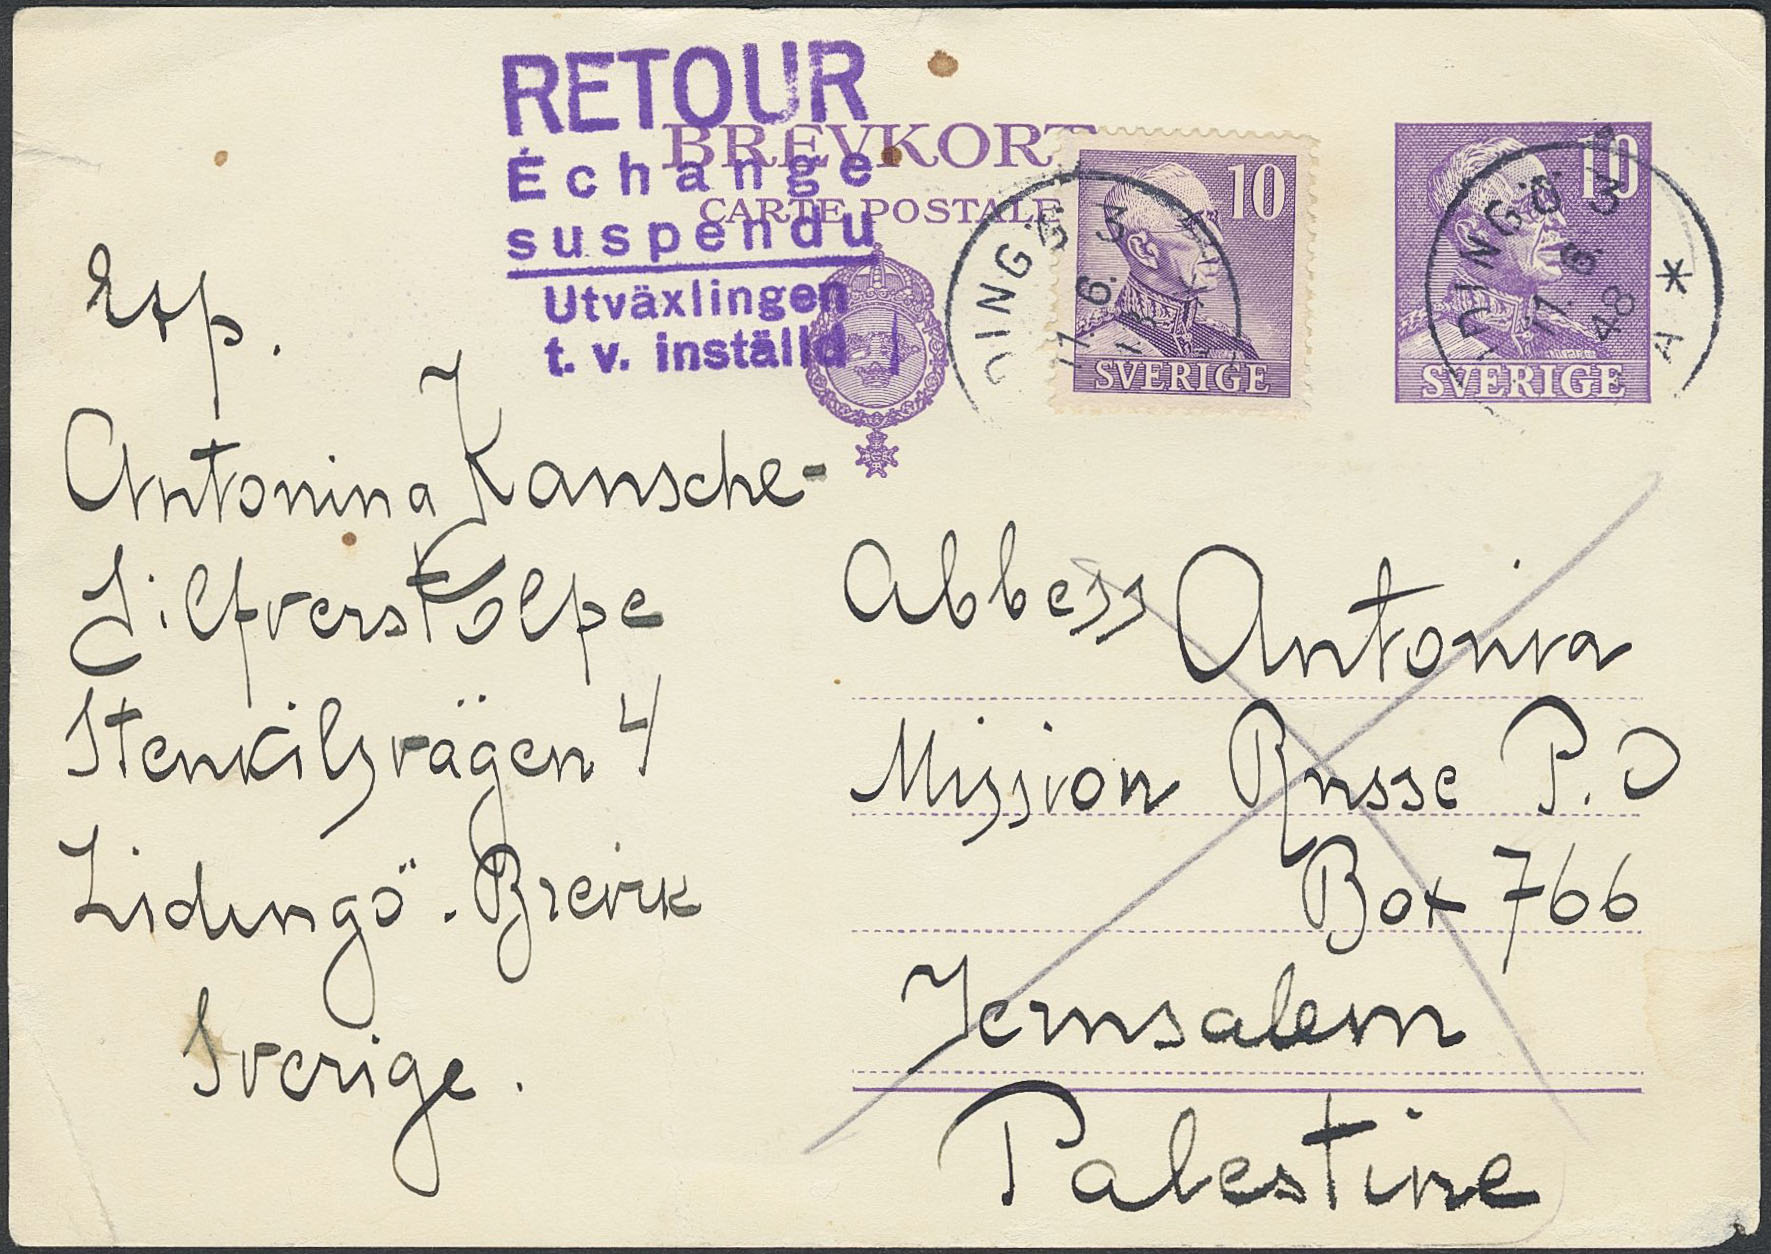 RETOUR
Échange
suspendu
Utväxlingen
t. v. inställd
BREVKORT
CARTE POSTALE
10
SVERIGE
10
SVERIGE
DINGÖ 3
11. 6.
LIDINGÖ 3
11. 6.
48
A *
Exp.
Antonina Kansche-
Silfverstolpe
Stenkilsvägen 4
Lidingö - Brevik
Sverige.
Abbess Antonia
Mission Russe P.O
Box 766
Jerusalem
Palestine